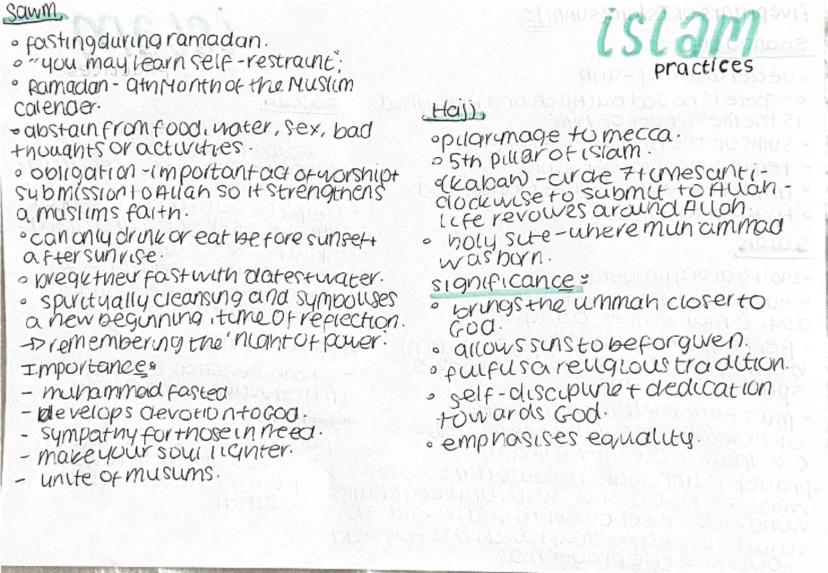 Sawm
• fasting during ramadan.
• "you may learn self-restraint";
• Ramadan - 9th Month of the Muslim
calender.
• abstain from food, water, sex, bad
thoughts or activities.
• obligation - important act of worship +
submission to Allah so it strengthens
a muslims faith.
• can only drink or eat before sunset +
after sunrise.
• break their fast with dates + water.
• spiritually cleansing and symbolises
a new beginning, time of reflection.
→ remembering the 'night of power'.
Importance:
- muhammad fasted
- develops devotion to God.
- sympathy for those in need.
- make your soul lighter.
- unite of muslims.
islam
practices
Hajj
• pilgrimage to mecca.
• 5th pillar of islam.
(kabah) - circle 7 times anti-
clockwise to submit to Allah -
life revolves around Allah.
• holy site - where muhammad
was born.
significance:
• brings the ummah closer to
God.
• allows sins to be forgiven.
• fulfils a religious tradition
• self-discipline + dedication
towards God.
• emphasises equality.